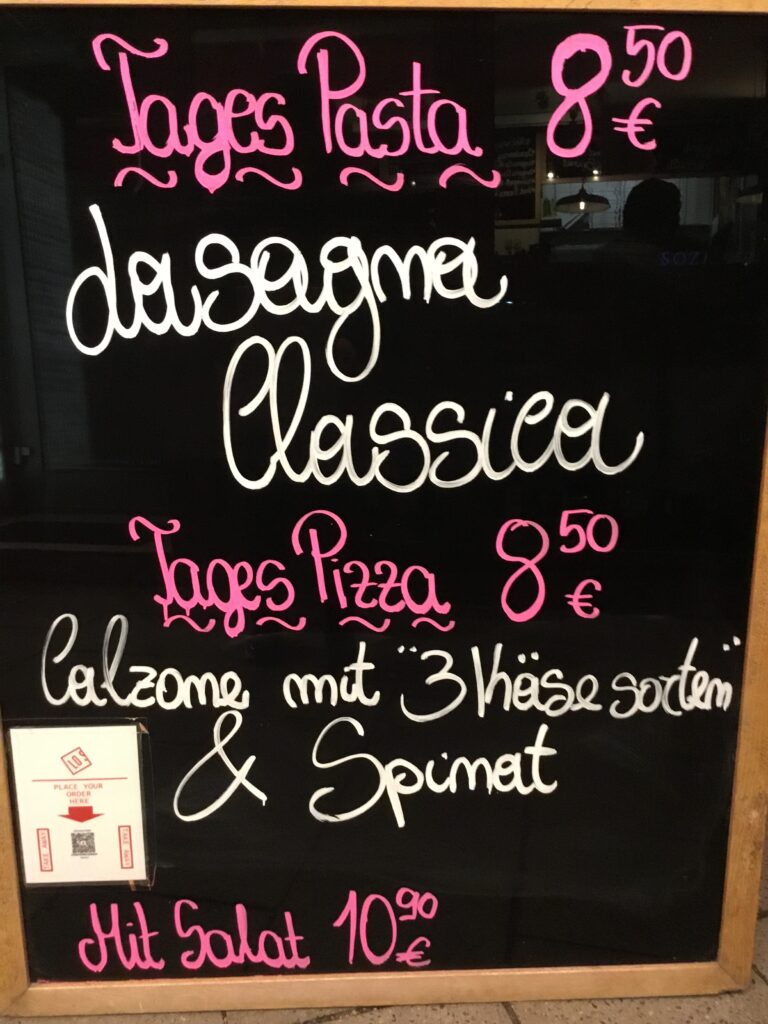 Tages Pasta 8,50 €
Lasagna
Classica
Tages Pizza 8,50 €
Calzone mit "3 Käse sorten"
& Spinat
LO
PLACE YOUR
ORDER
HERE
TAKE AWAY
TAKE AWAY
Mit Salat 10,90 €